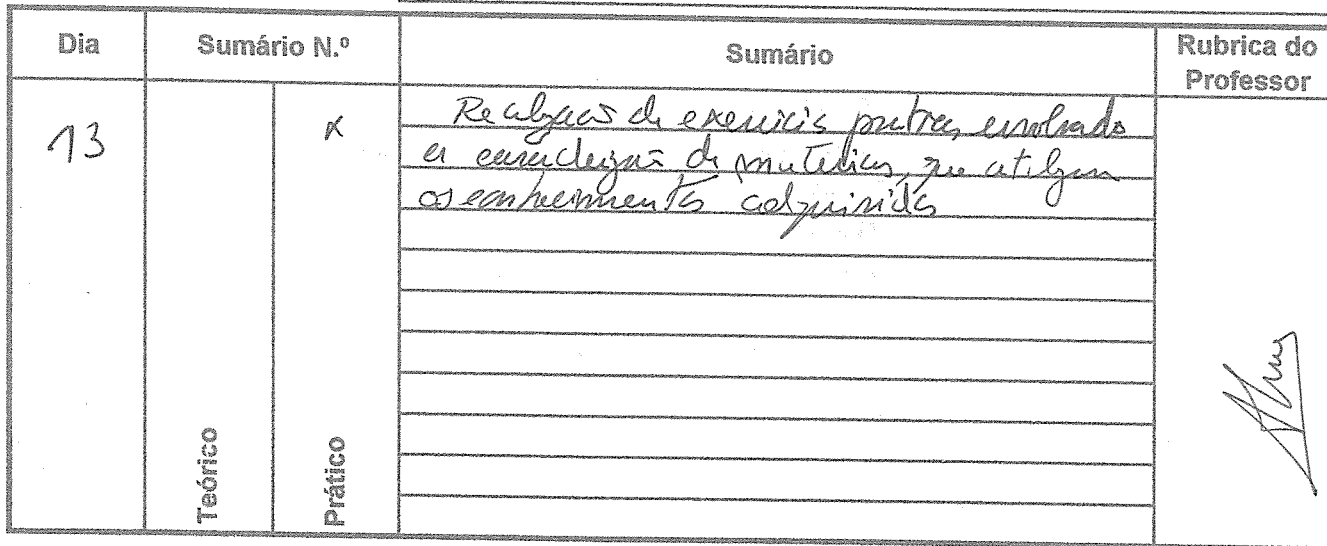 Dia Sumário N.º Sumário Rubrica do Professor
13 X Realização de exercícios práticos, envolvendo
a caracterização de materiais, que utilizam
os conhecimentos adquiridos
Teórico Prático